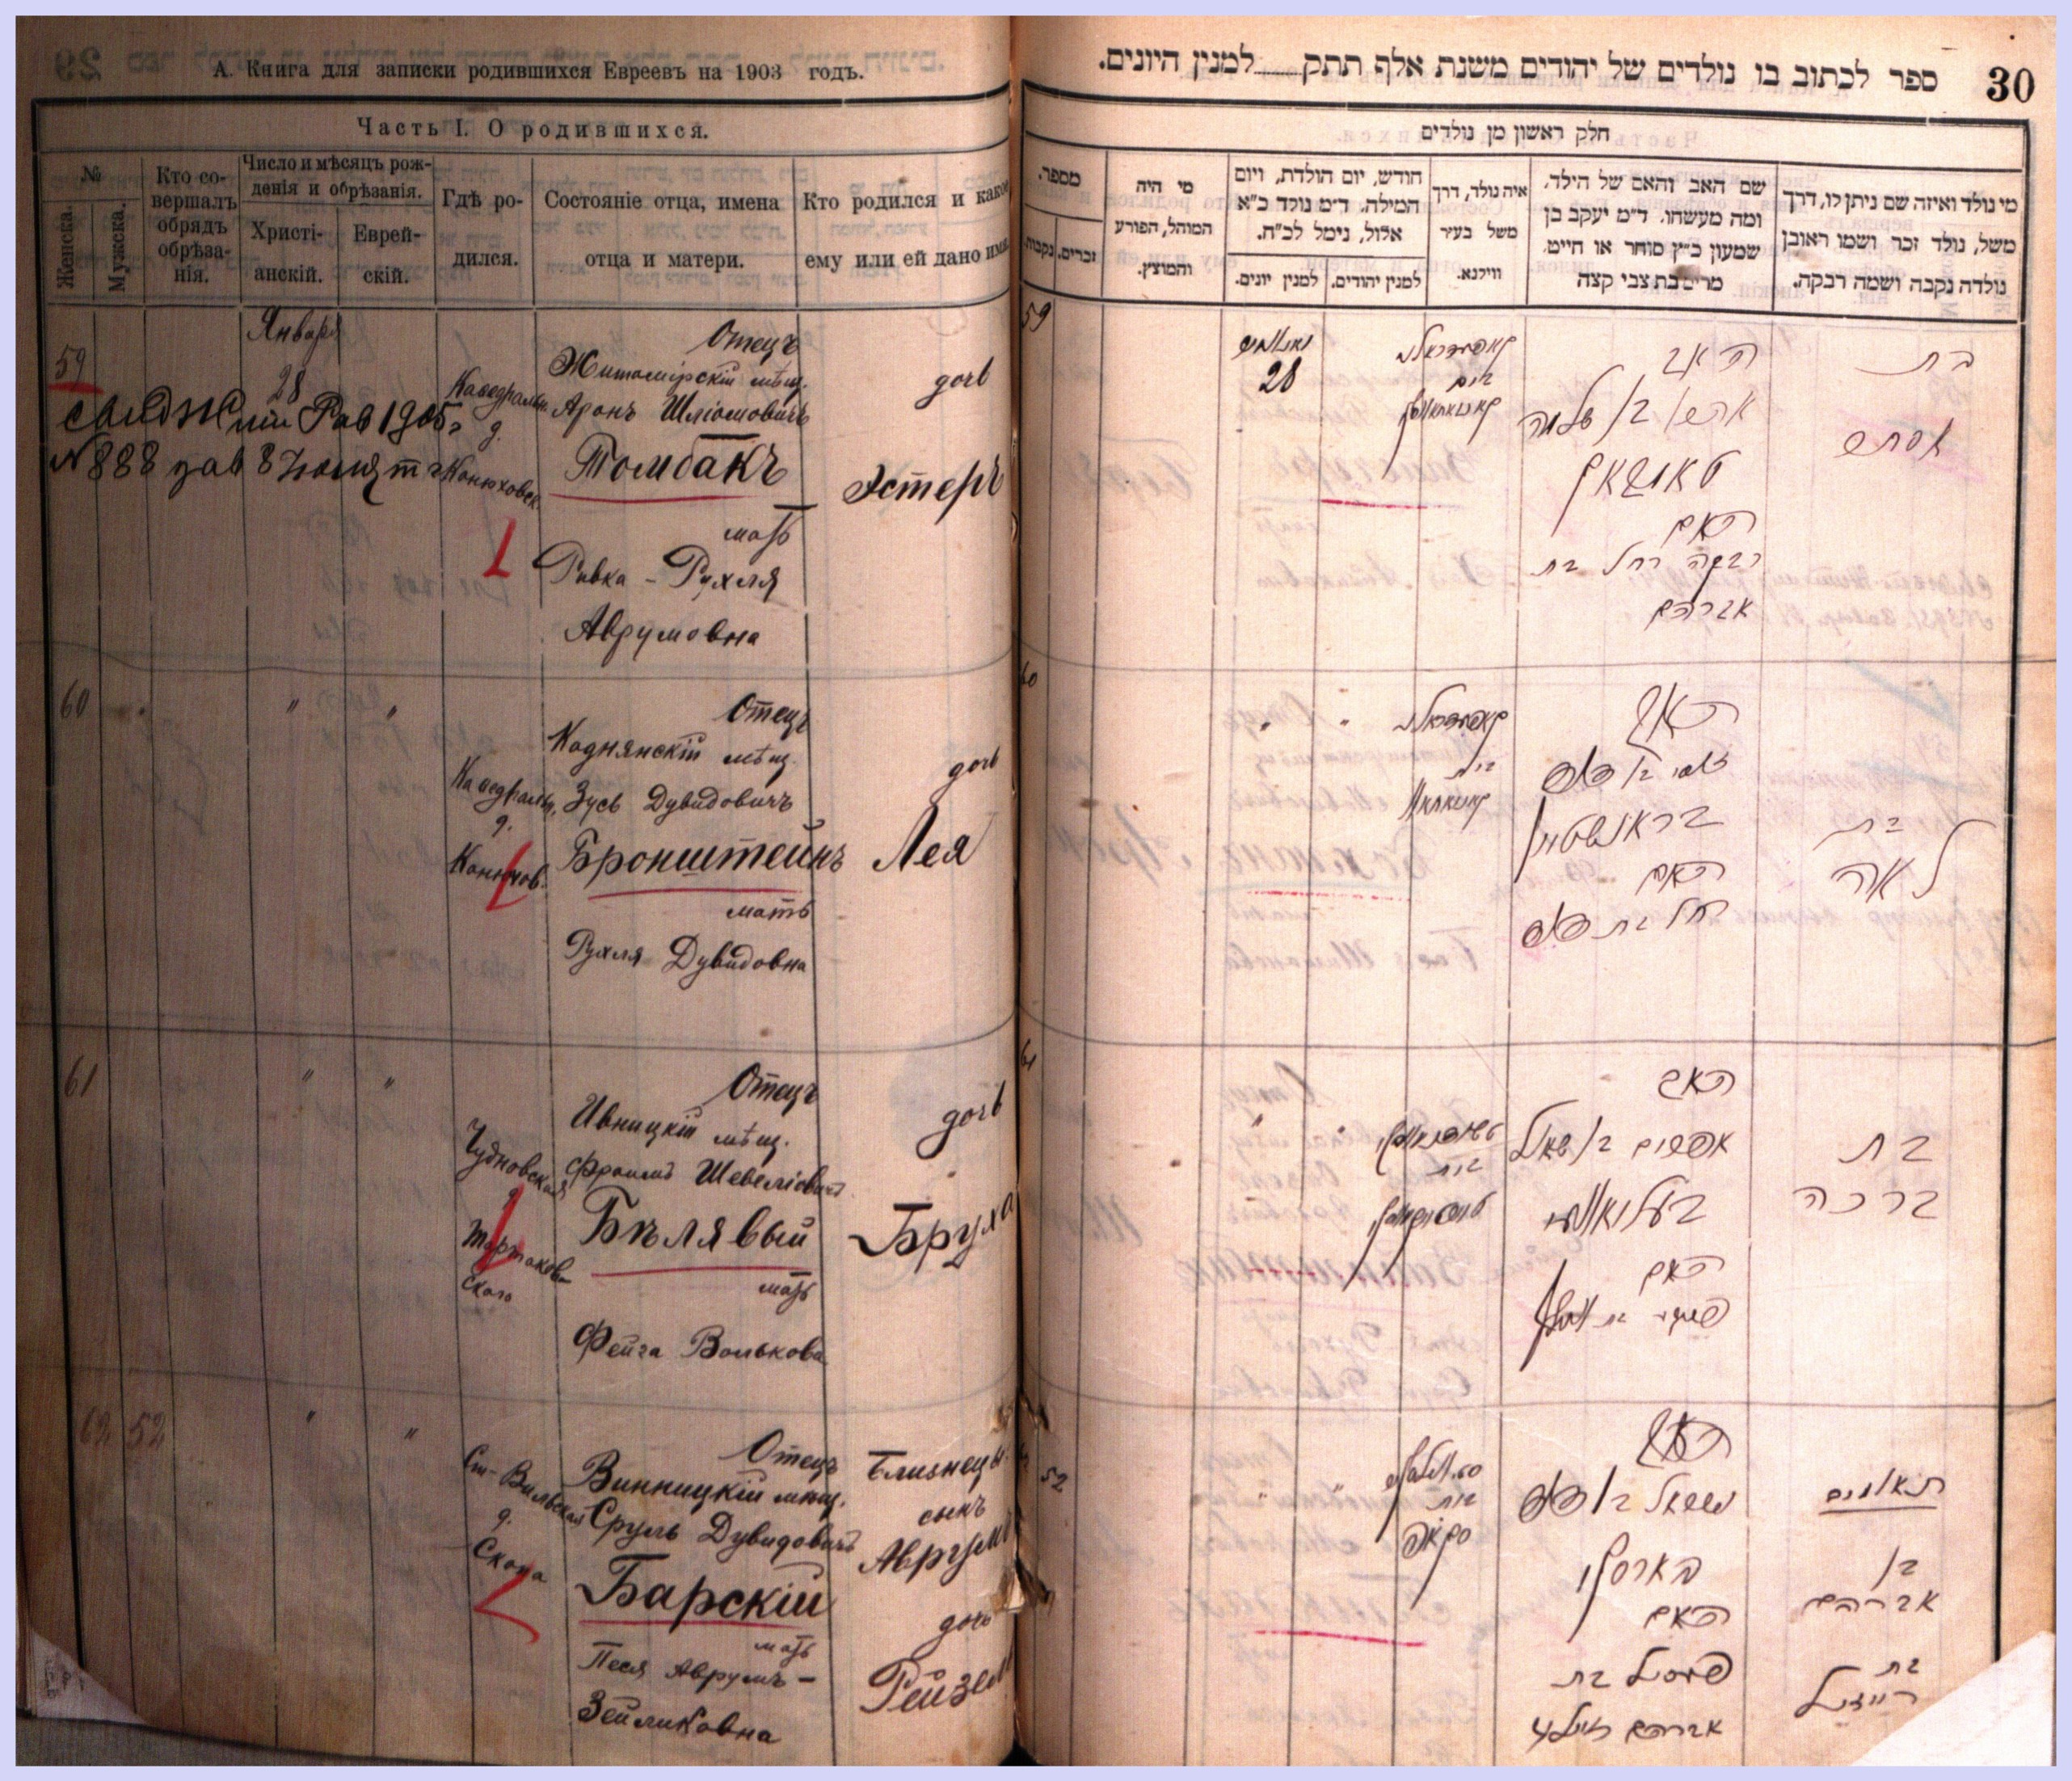 А. Книга для записки родившихся Евреевъ на 1903 годъ.
Часть I. О родившихся.
№
Женска.
Мужска.
Кто со-
вершалъ
обрядъ
обрѣза-
нія.
Число и мѣсяцъ рож-
денія и обрѣзанія.
Христі-
анскій.
Еврей-
скій.
Гдѣ ро-
дился.
Состояніе отца, имена
отца и матери.
Кто родился и какое
ему или ей дано имя.
59
Января
28
№ 888
Каѳедральн.
д.
Конюховск.
Отецъ
Житомірскій мѣщ.
Аронъ Шліомовичъ
Томбакъ
мать
Ривка - Рухля
Аврумовна
дочь
Эстеръ
60
" "
Каѳедральн.
д.
Конюхов.
Отецъ
Коднянскій мѣщ.
Зусь Дувидовичъ
Бронштейнъ
мать
Рухля Дувидовна
дочь
Лея
61
" "
Чудновская
д.
Тартаков-
скаго
Отецъ
Ивницкій мѣщ.
Фроимъ Шевеліовичъ
Бѣлявый
мать
Фейга Волькова
дочь
Бруха
62 52
" "
Ст-Вильская
д.
Скока
Отецъ
Винницкій мѣщ.
Сруль Дувидовичъ
Барскій
мать
Песя Аврумъ-
Зейликовна
Близнецы
сынъ
Аврумъ
дочь
Рейзель
30
ספר לכתוב בו נולדים של יהודים משנת אלף תתק למנין היונים.
חלק ראשון מן נולדים
מי נולד ואיזה שם ניתן לו, דרך
משל, נולד זכר ושמו ראובן
נולדה נקבה ושמה רבקה.
שם האב והאם של הילד,
ומה מעשהו. ד״מ יעקב בן
שמעון כ״ץ סוחר או חייט.
מרים בת צבי קצה
איה נולד, דרך
משל בעיר
ווילנא.
חודש, יום הולדת, ויום
המילה. ד״מ נולד כ״א
אלול, נימל לכ״ח.
למנין יהודים.
למנין יונים.
מי היה
המוהל, הפורע
והמוצץ.
מספר.
זכרים.
נקבות
59
28
בית
האב
אהרן בן שלמה
טאמבאק
האם
רבקה רחל בת
אברהם
בת
אסתר
60
" "
בית
האב
זוסי בן דוד
בראנשטיין
האם
רחל בת דוד
בת
לאה
61
"
בית
האב
אפרים בן שאול
האם
בת
ברכה
52
בית
סקאקא
האב
ישראל בן דוד
בארסקי
האם
פעסיל בת
אברהם זעליג
תאומים
בן
אברהם
בת
רייזיל